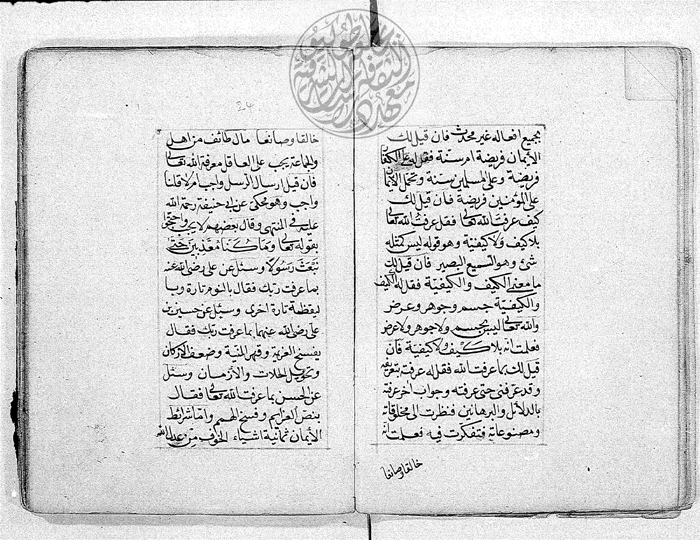 بجميع افعاله غير محدث فان قيل لك
الأيمان فريضة ام سنة فقل له على الكفار
فريضة وعلى المسلمين سنة وتحمل الأيمان
على المؤمنين فريضة فان قيل لك
كيف عرفت الله تعالى فقل عرفت الله تعالى
بلا كيف ولا كيفية وهو قوله ليس كمثله
شئ وهو السميع البصير فان قيل لك
ما معنى الكيف والكيفية فقل له الكيف
والكيفية جسم وجوهر وعرض
والله تعالى ليس بجسم ولا جوهر ولا عرض
فعلمت انه بلا كيف ولا كيفية فان
قيل لك بما عرفت الله فقل له عرفته بتعريفه
وقد عرفنى حتى عرفته وجواب اخر عرفته
بالدلائل والبرهانين فنظرت الى مخلوقاته
ومصنوعاته فتفكرت فيه فعلمت انه
خالقا وصانعا
24
خالقا وصانعا مال طائف من اهل
والجماعة يجب على العاقل معرفة الله تعالى
فان قيل ارسال الرسل واجب ام لا قلنا
واجب وهو محكى عن ابى حنيفة رحمة الله
عليه فى المنتهى وقال بعضهم لا يجب واحتجوا
بقوله تعالى وما كنا معذبين حتى
نبعث رسولا وسئل عن على رضى الله عنه
بما عرفت ربك فقال بالنوم تارة وبا
ليقظة تارة اخرى وسئل عن حسين بن
على رضى الله عنهما بما عرفت ربك فقال
بفسخ العزيمة وقهر المنية وضعف الاركان
وتحويل الحالات والأزمان وسئل
عن الحسن بما عرفت الله تعالى فقال
بنقض العزايم وفسخ الهمم واما شرائط
الأيمان ثمانية اشياء الخوف من عدالله